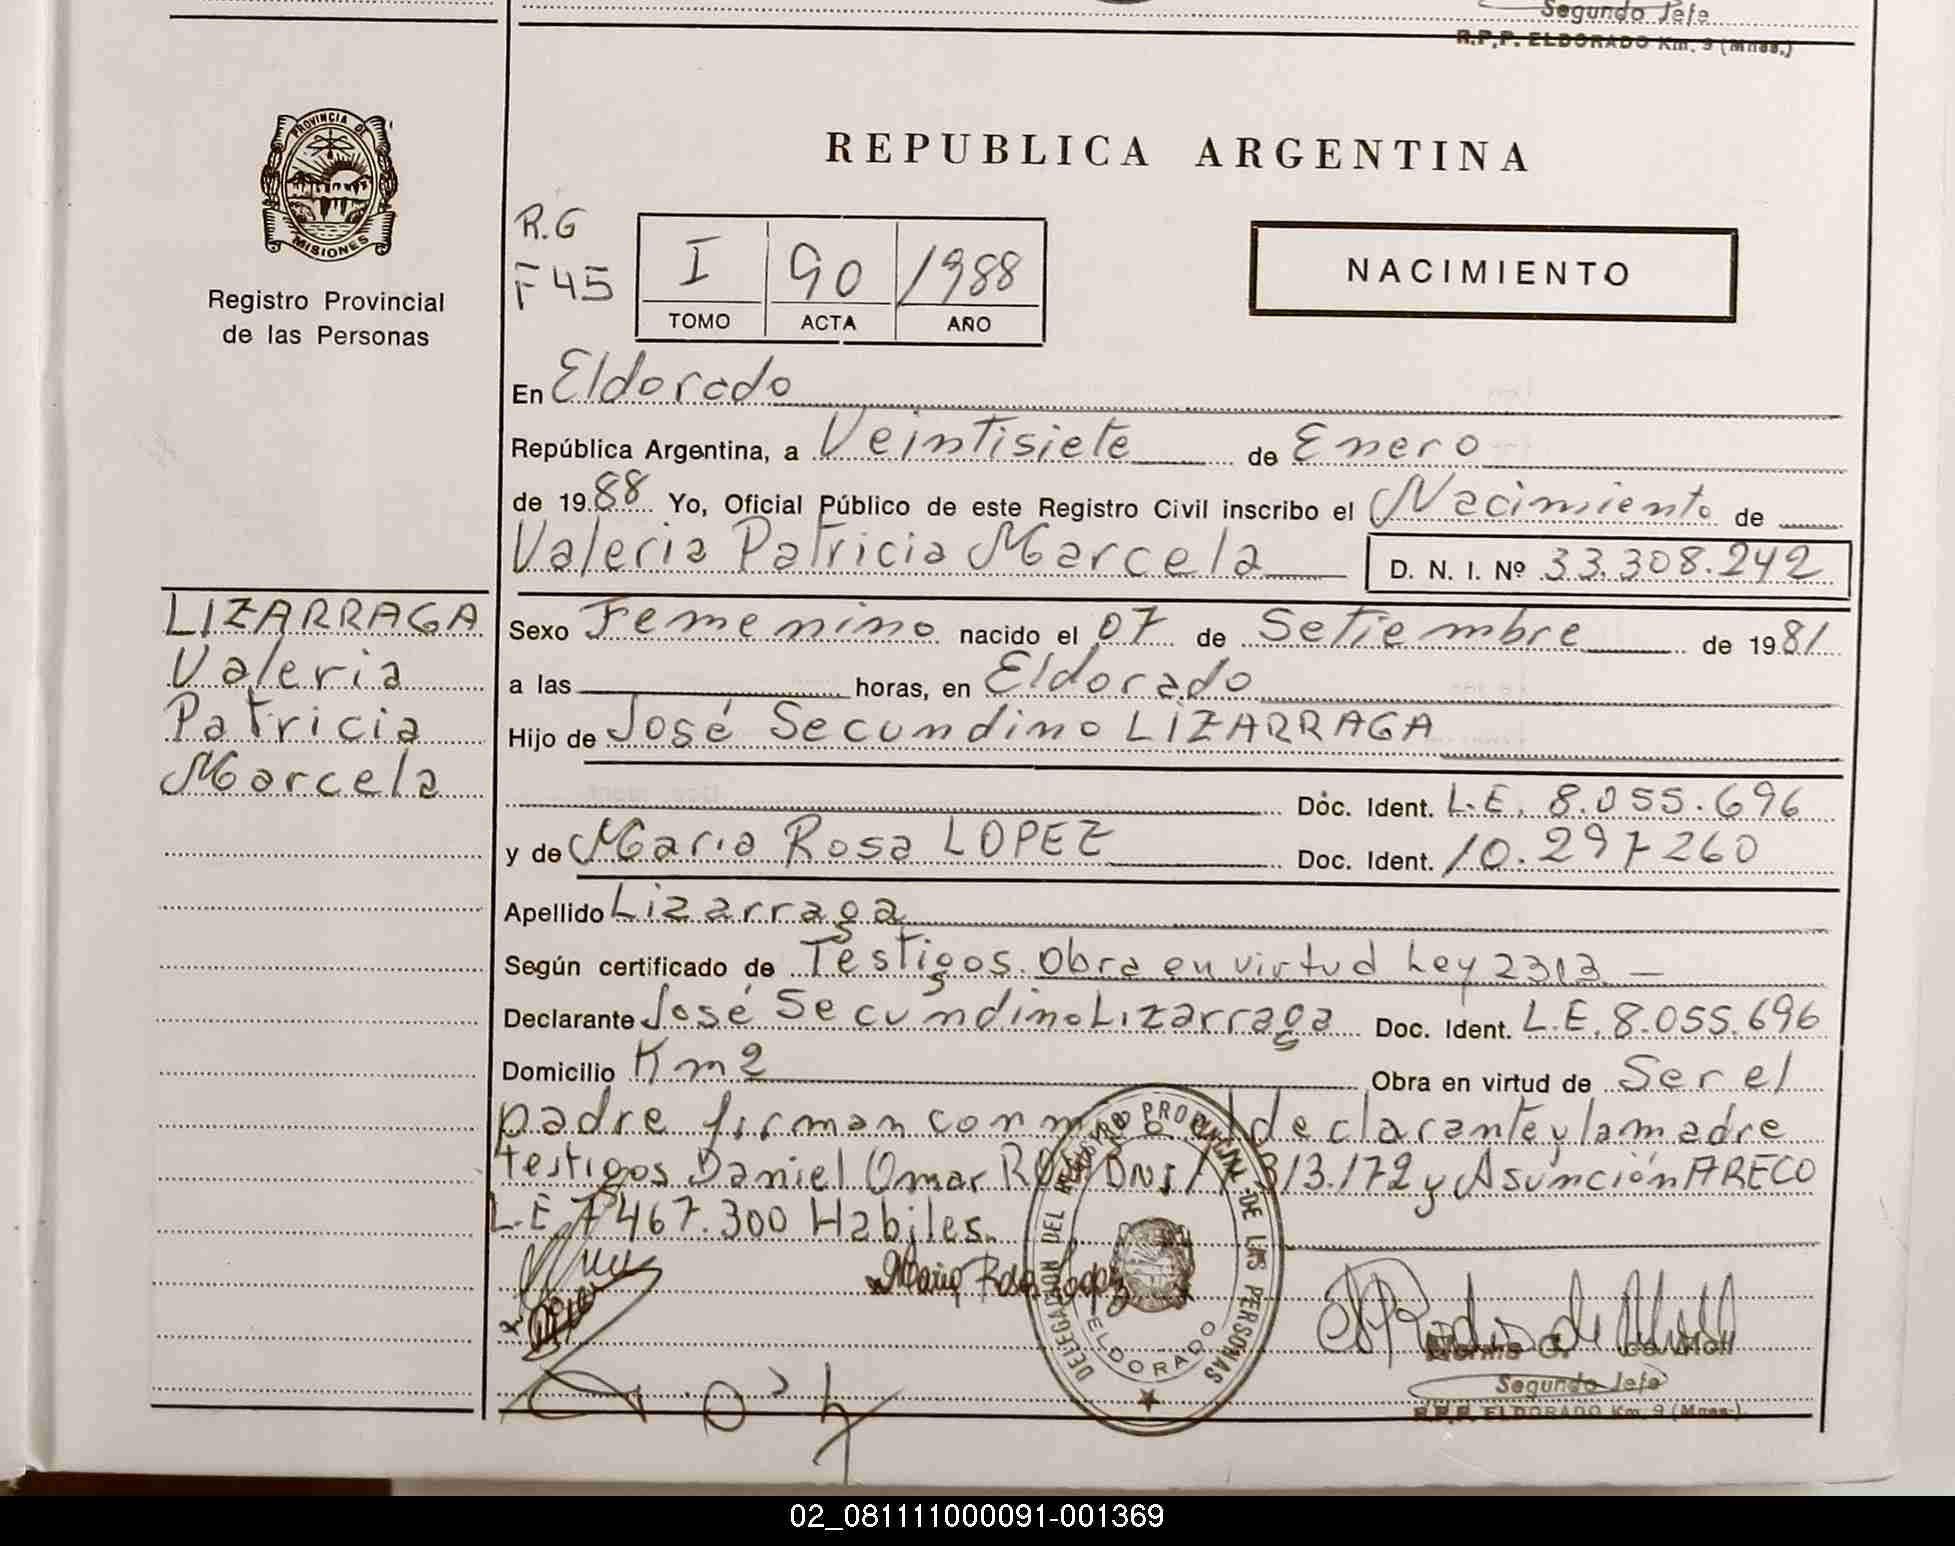 Segundo Jefe
R.P.P. ELDORADO Km. 9 (Mnes.)
PROVINCIA DE
MISIONES
Registro Provincial
de las Personas
REPUBLICA ARGENTINA
R.G
F 45
I 90 1988
TOMO ACTA AÑO
NACIMIENTO
En Eldorado
República Argentina, a Veintisiete de Enero
de 1988 Yo, Oficial Público de este Registro Civil inscribo el Nacimiento de
Valeria Patricia Marcela D. N. I. Nº 33.308.242
LIZARRAGA
Valeria
Patricia
Marcela
Sexo Femenino nacido el 07 de Setiembre de 1981
a las horas, en Eldorado
Hijo de José Secundino LIZARRAGA
Doc. Ident. L.E. 8.055.696
y de Maria Rosa LOPEZ Doc. Ident. 10.297260
Apellido Lizarraga
Según certificado de Testigos. Obra en virtud Ley 2313 -
Declarante José Secundino Lizarraga Doc. Ident. L.E. 8.055.696
Domicilio Km 2 Obra en virtud de Ser el
padre firman con declarante y la madre
testigos Daniel Omar Dni 313.172 y Asunción ARECO
L.E 7467.300 Habiles.
Maria Rosa Lopez
DELEGACION DEL REGISTRO PROVINCIAL DE LAS PERSONAS
ELDORADO
Norma
Segundo Jefe
R.P.P. ELDORADO Km. 9 (Mnes.)
02_081111000091-001369